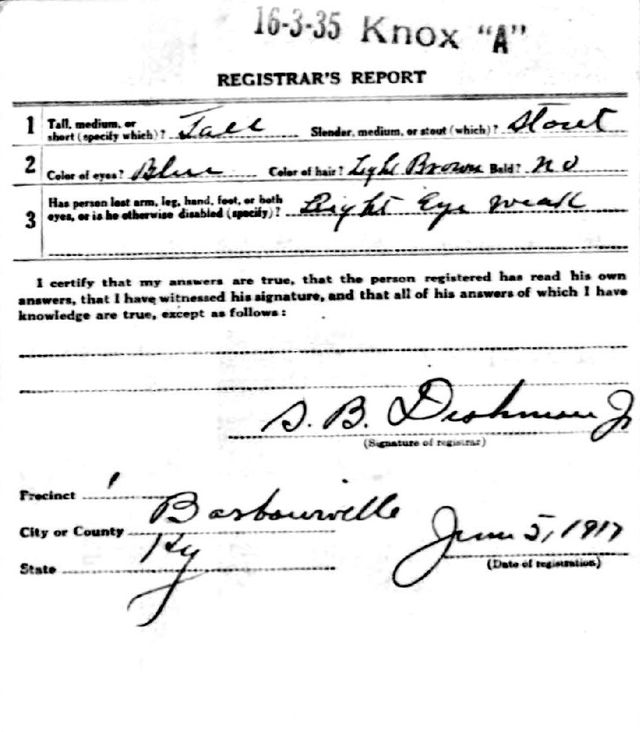 16-3-35 Knox "A"
REGISTRAR'S REPORT
1 Tall, medium, or short (specify which)? Tall Slender, medium, or stout (which)? Stout
2 Color of eyes? Blue Color of hair? Light Brown Bald? No
3 Has person lost arm, leg, hand, foot, or both eyes, or is he otherwise disabled (specify)? Right Eye weak
I certify that my answers are true, that the person registered has read his own
answers, that I have witnessed his signature, and that all of his answers of which I have
knowledge are true, except as follows:
S. B. Dishman Jr
(Signature of registrar)
Precinct 1
City or County Barbourville
State Ky
June 5, 1917
(Date of registration)